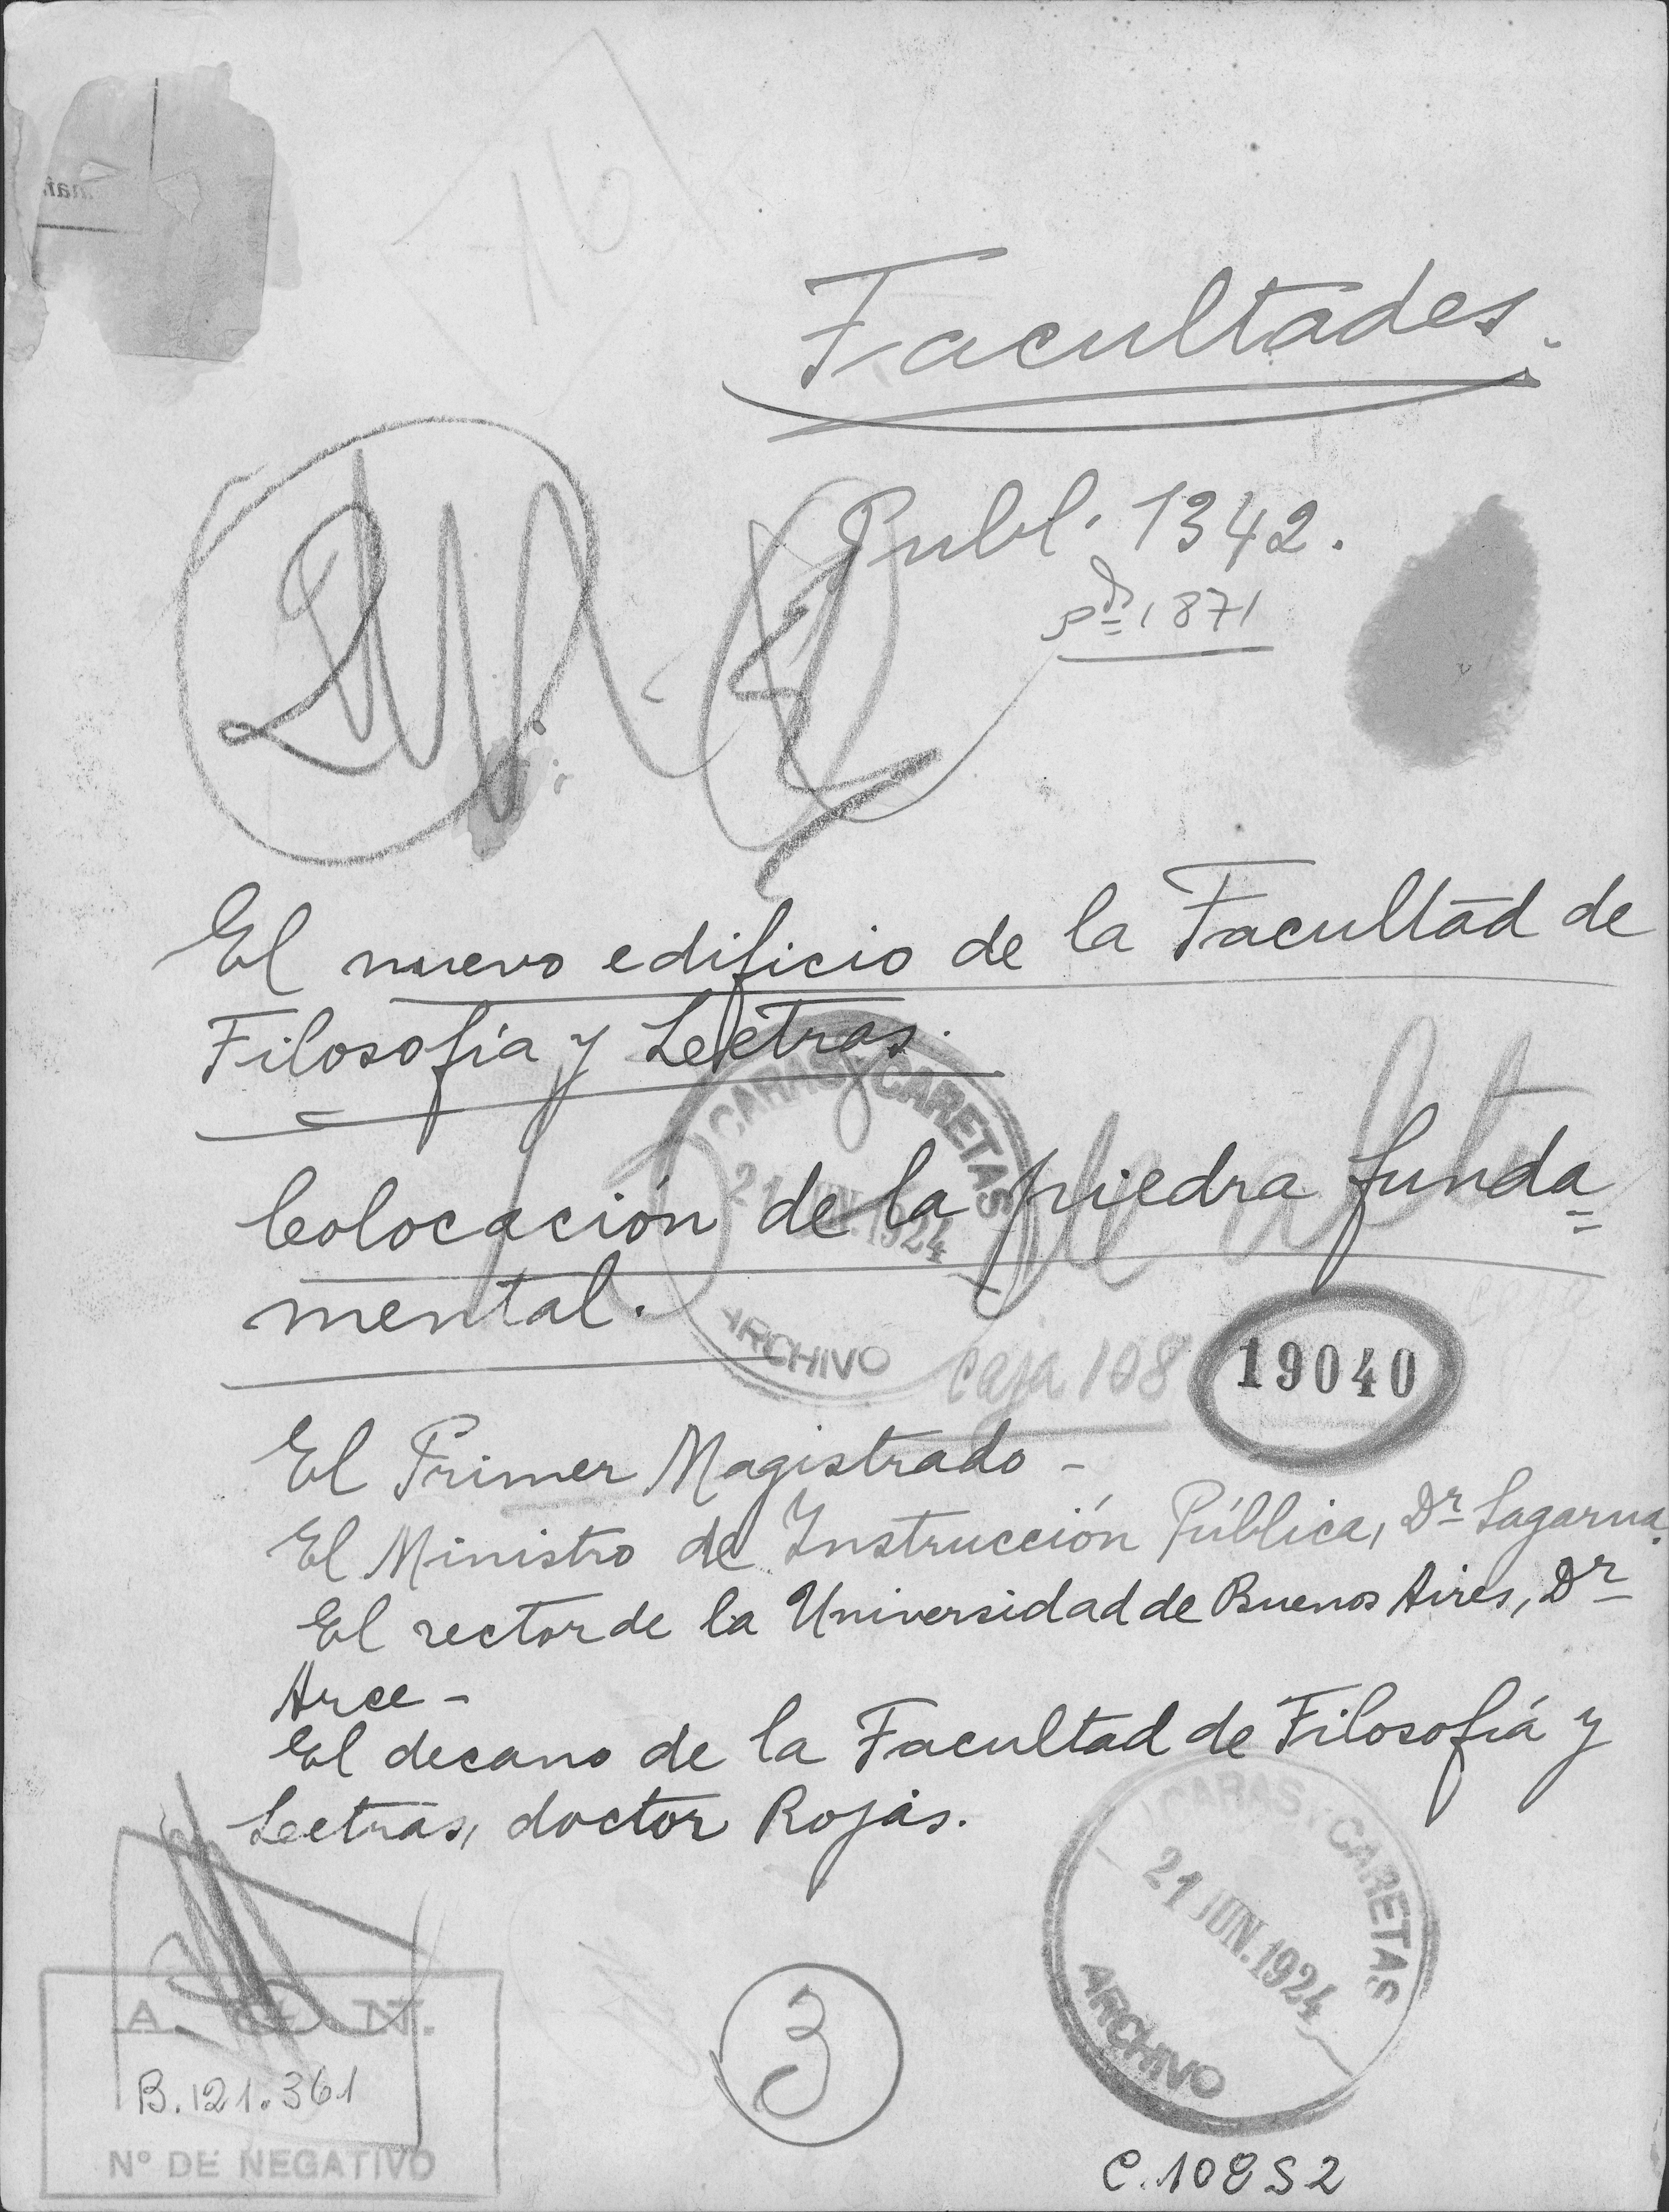 16
Facultades.
Publ. 1342.
1871
El nuevo edificio de la Facultad de
Filosofía y Letras.
CARAS Y CARETAS
21 JUN. 1924
ARCHIVO
Colocación de la piedra funda=
mental.
caja 108
19040
El Primer Magistrado -
El Ministro de Instrucción Pública, Dr Sagarna.
El rector de la Universidad de Buenos Aires, Dr
Arce -
El decano de la Facultad de Filosofía y
Letras, doctor Rojas.
CARAS Y CARETAS
21 JUN. 1924
ARCHIVO
A. G. N.
B.121.361
Nº DE NEGATIVO
3
C.108 S 2